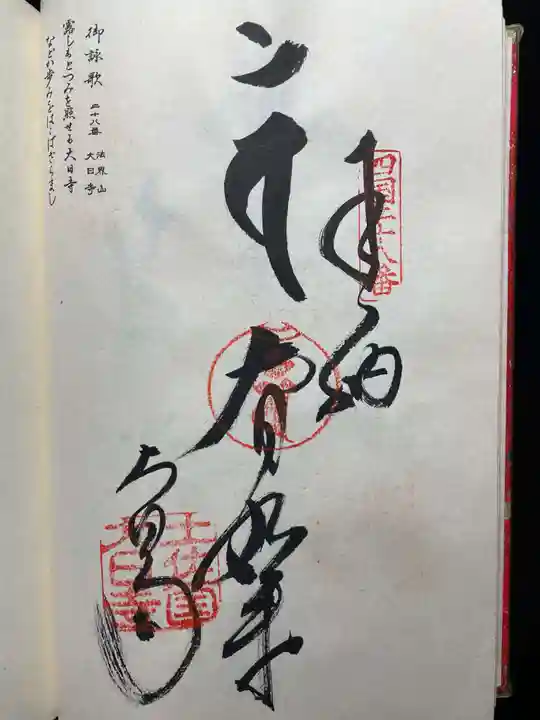 四国二十八番
奉納
大日如来
大日寺
土佐国
大日寺
御詠歌 二十八番 法界山 大日寺
露しもとつみを照せる大日寺
などか歩みをはこばざらまし